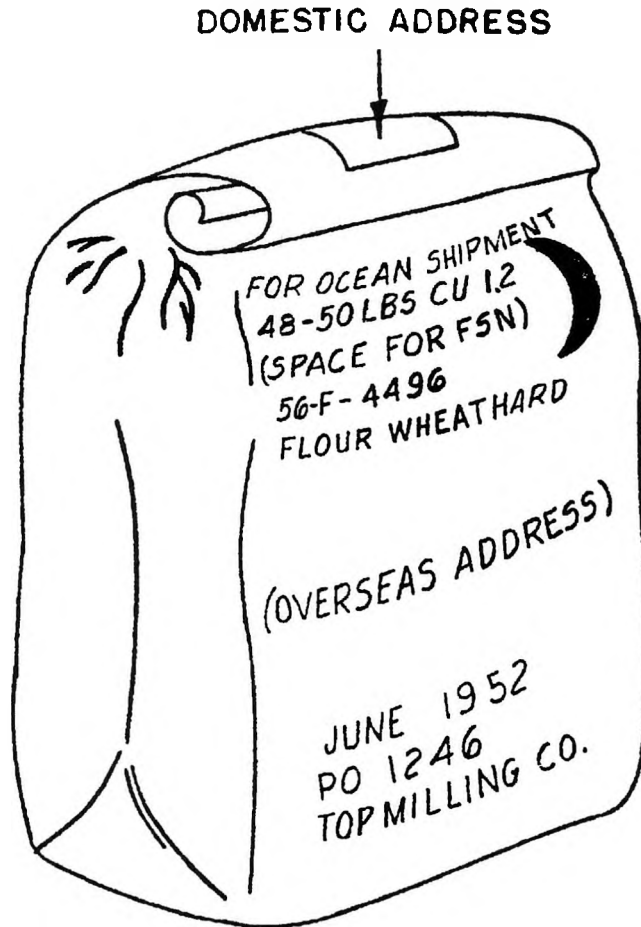 DOMESTIC ADDRESS
FOR OCEAN SHIPMENT
48-50 LBS CU 1.2
(SPACE FOR FSN)
56-F-4496
FLOUR WHEATHARD
(OVERSEAS ADDRESS)
JUNE 1952
PO 1246
TOPMILLING CO.